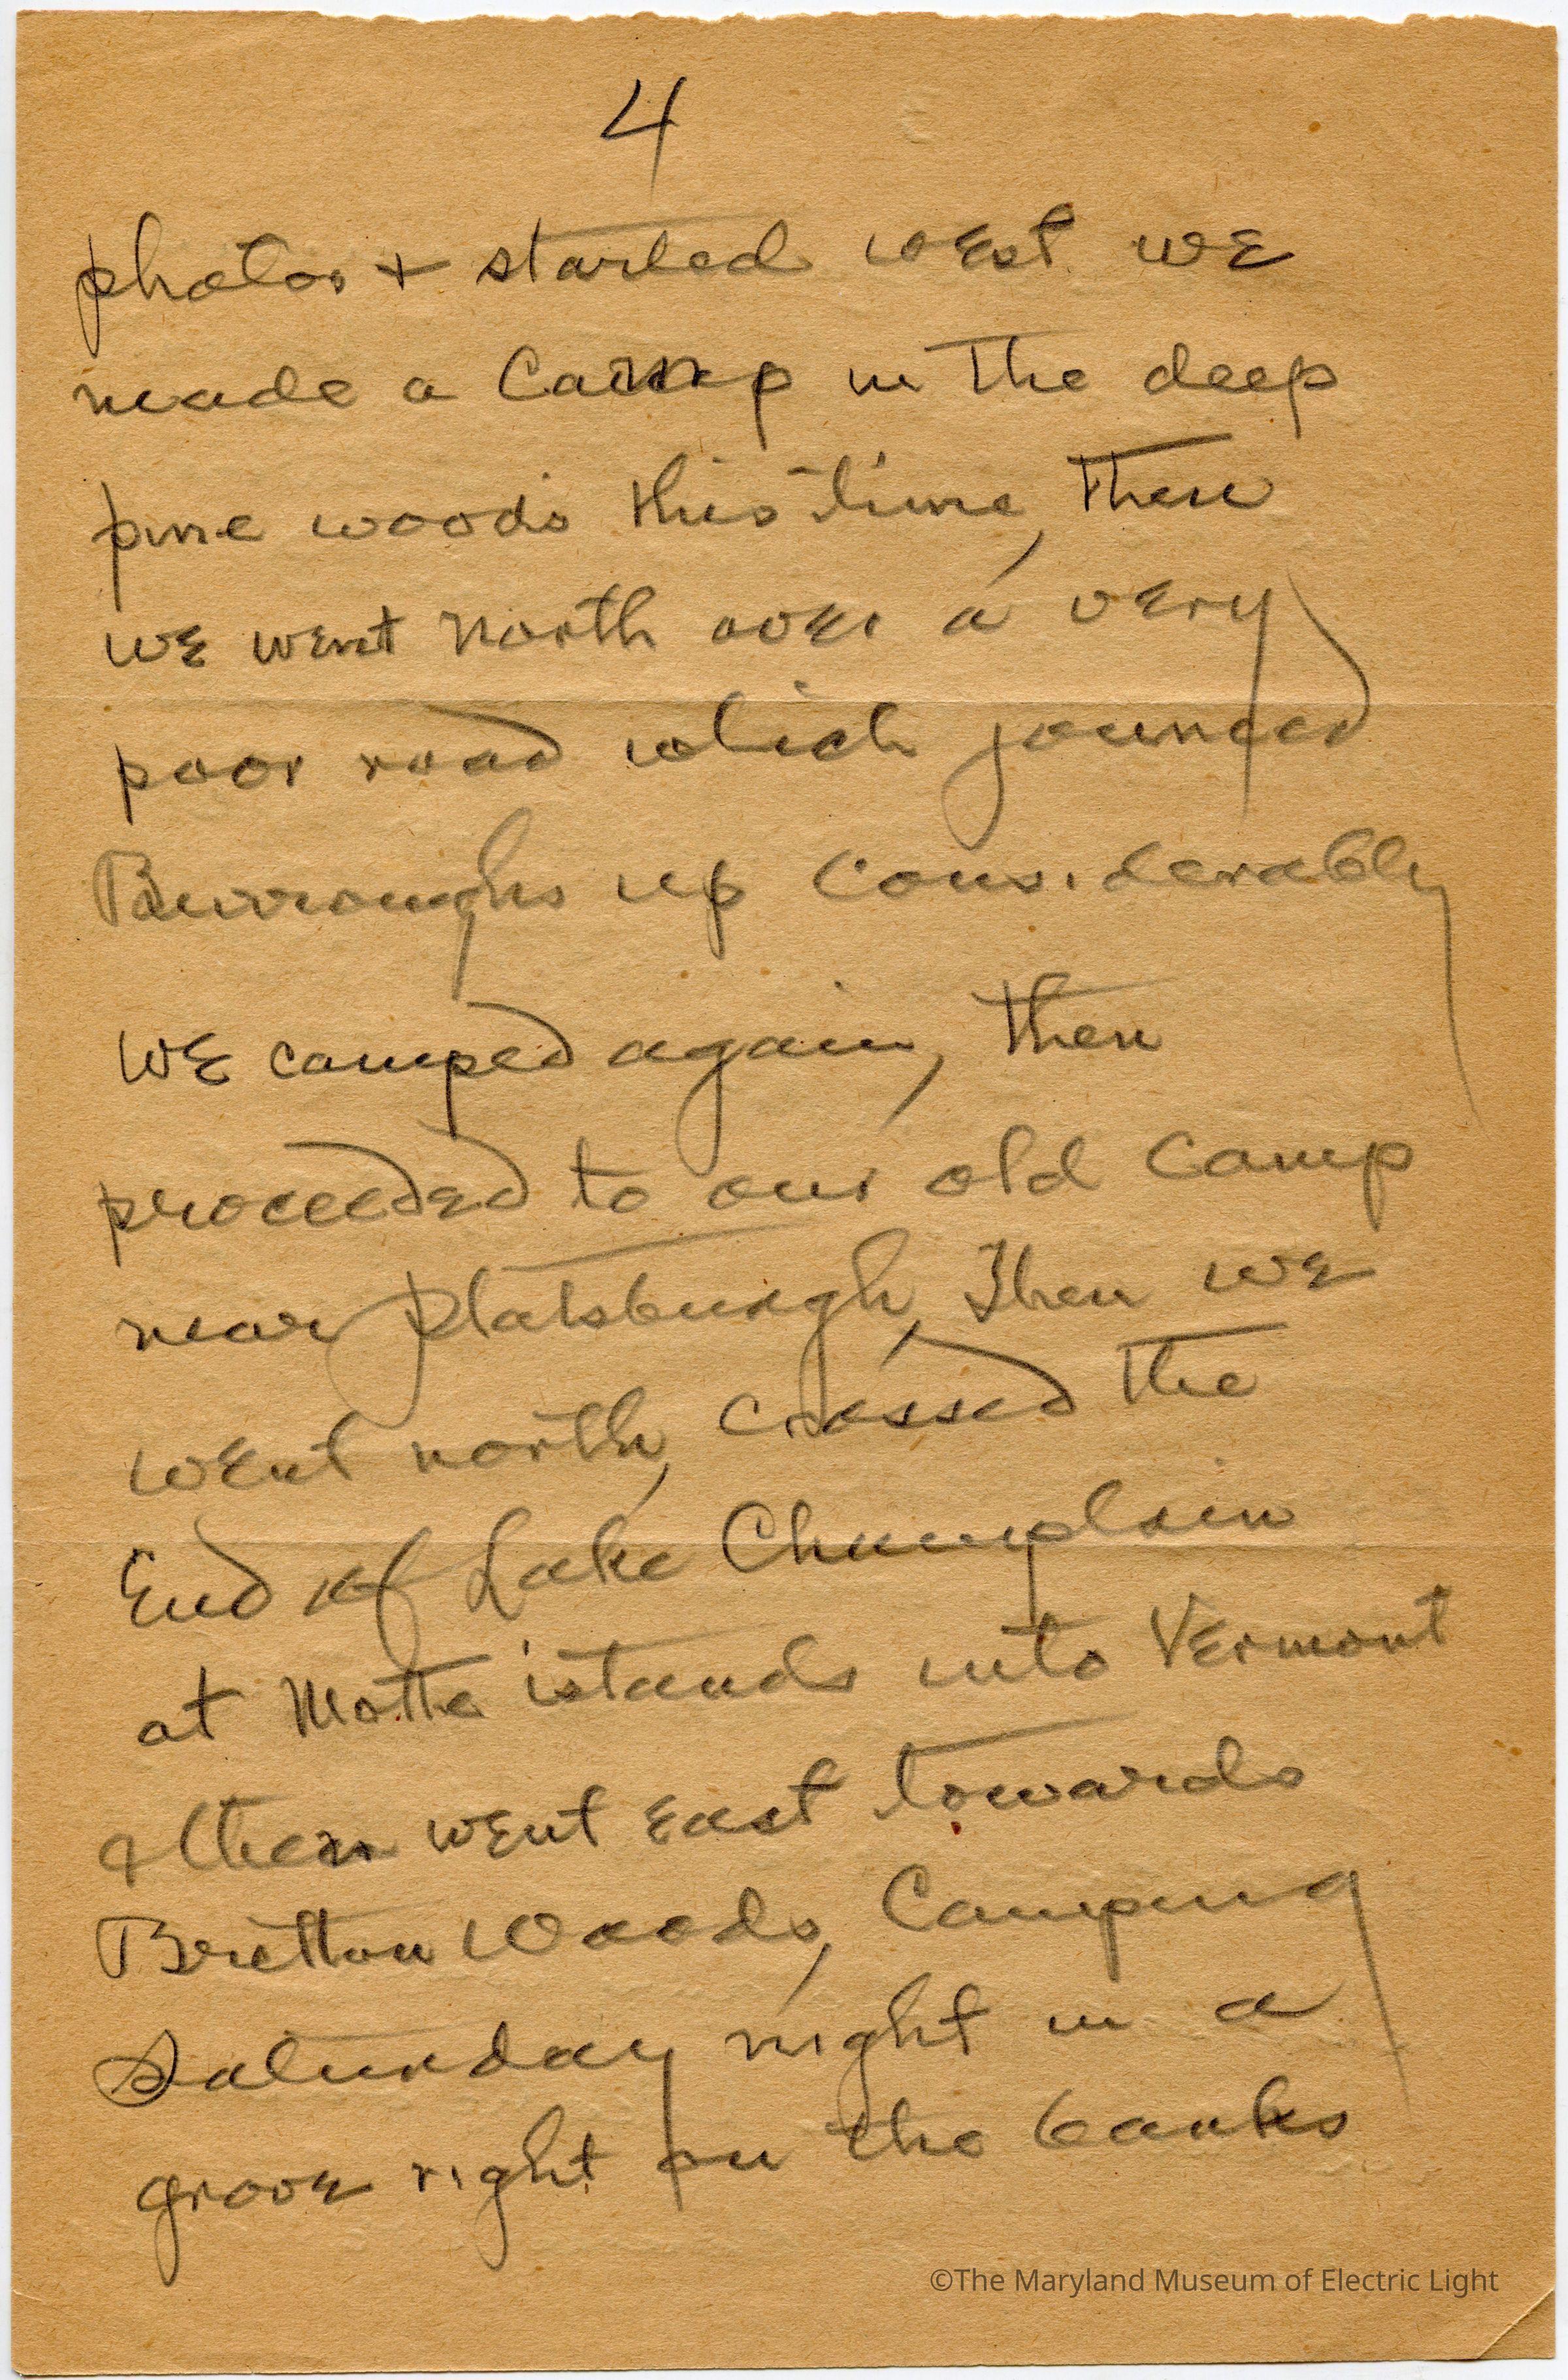 4
photos + started west we
made a Camp in the deep
pine woods this time, Then
we went north over a very
poor road which jounced
Burroughs up considerably
We camped again, then
proceeded to our old camp
near Platsburgh, Then we
went north, crossed the
End of Lake Champlain
at Motte islands into Vermont
& then went East towards
Bretton Woods, Camping
Saturday night in a
grove right on the banks
©The Maryland Museum of Electric Light